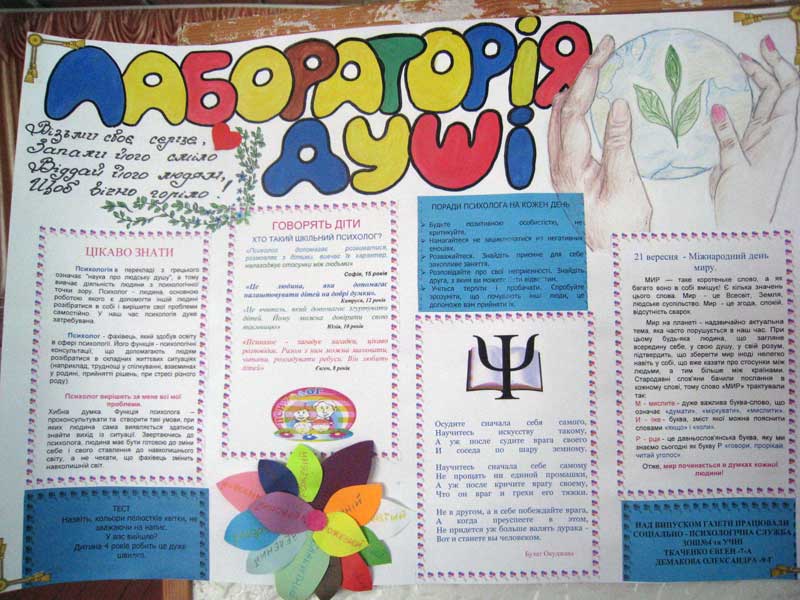 ЛАБОРАТОРІЯ
ДУШІ
Візьми своє серце,
Запали його сміло
Віддай його людям,
Щоб вічно горіло!
ЦІКАВО ЗНАТИ
Психологія в перекладі з грецького
означає "наука про людську душу", а тому
вивчає діяльність людини з психологічної
точки зору. Психолог – людина, основною
роботою якого є допомогти іншій людині
розібратися в собі і вирішити свої проблеми
самостійно. У наш час психологія дуже
затребувана.
Психолог - фахівець, який здобув освіту
в сфері психології. Його функція - психологічні
консультації, що допомагають людям
розібратися в складних життєвих ситуаціях
(наприклад, труднощі у спілкуванні, взаєминах
у родині, прийнятті рішень, при стресі різного
роду)
Психолог вирішить за мене всі мої
проблеми.
Хибна думка. Функція психолога –
проконсультувати та створити такі умови, при
яких людина сама виявляється здатною
знайти вихід із ситуації. Звертаючись до
психолога, людина має бути готовою до зміни
себе і свого ставлення до навколишнього
світу, а не чекати, що фахівець змінить
навколишній світ.
ТЕСТ
Назвіть, кольори пелюстків квітки, не
зважаючи на напис.
У вас вийшло?
Дитина 4 років робить це дуже
швидко.
ГОВОРЯТЬ ДІТИ
ХТО ТАКИЙ ШКІЛЬНИЙ ПСИХОЛОГ?
«Психолог допомагає розвиватися,
розмовляє з дітьми, вивчає їх характер,
налагоджує стосунки між людьми»
Софія, 15 років
«Це людина, яка допомагає
налаштовувати дітей на добрі думки».
Катруся, 12 років
«Це вчитель, який допомагає згуртувати
дітей. Йому можна довірити свою
таємницю»
Юлія, 10 років
«Психолог - загадує загадки, цікаво
розповідає. Разом з ним можна малювати,
читати, розгадувати ребуси. Він любить
дітей»
Євген, 8 років
ПОРАДИ ПСИХОЛОГА НА КОЖЕН ДЕНЬ
Будьте позитивною особистістю, не
критикуйте.
Намагайтеся не зациклюватися на негативних
емоціях.
Розважайтеся. Знайдіть приємне для себе
захопливе заняття.
Розповідайте про свої неприємності. Знайдіть
друга, з яким ви можете
Учіться терпіти і пробачати. Спробуйте
зрозуміти, що почувають інші люди, це
допоможе вам прийняти їх.
Ψ
Осудите сначала себя самого,
Научитесь искусству такому,
А уж после судите врага своего
И соседа по шару земному.
Научитесь сначала себе самому
Не прощать ни единой промашки,
А уж после кричите врагу своему,
Что он враг и грехи его тяжки.
Не в другом, а в себе побеждайте врага,
А когда преуспеете в этом,
Не придется уж больше валять дурака -
Вот и станете вы человеком.
Булат Окуджава
21 вересня - Міжнародний день
миру.
МИР — таке коротеньке слово, а як
багато воно в собі вміщує! Є кілька значень
цього слова. Мир - це Всесвіт, Земля,
людське суспільство. Мир - це згода, спокій,
відсутність сварок.
Мир на планеті - надзвичайно актуальна
тема, яка часто порушується в наш час. При
цьому будь-яка людина, що загляне
всередину себе, у свою душу, у свій розум,
підтвердить, що зберегти мир іноді нелегко
навіть у собі, що вже казати про стосунки між
людьми, а тим більше між країнами.
Стародавні слов'яни бачили послання в
кожному слові, тому слово «МИР» трактували
так:
М - мислите - дуже важлива буква-слово, що
означає «думати», «міркувати», «мислити».
И - іже - буква, зміст якої можна пояснити
словами «якщо» і «коли».
Р - рци - це давньослов'янська буква, яку ми
знаємо сьогодні як букву Р «говори, прорікай,
читай уголос».
Отже, мир починається в думках кожної
людини!
НАД ВИПУСКОМ ГАЗЕТИ ПРАЦЮВАЛИ
СОЦІАЛЬНО - ПСИХОЛОГІЧНА СЛУЖБА
ЗОШ№4 та УЧНІ
ТКАЧЕНКО ЄВГЕН -7-А
ДЕМАКОВА ОЛЕКСАНДРА -9-Г